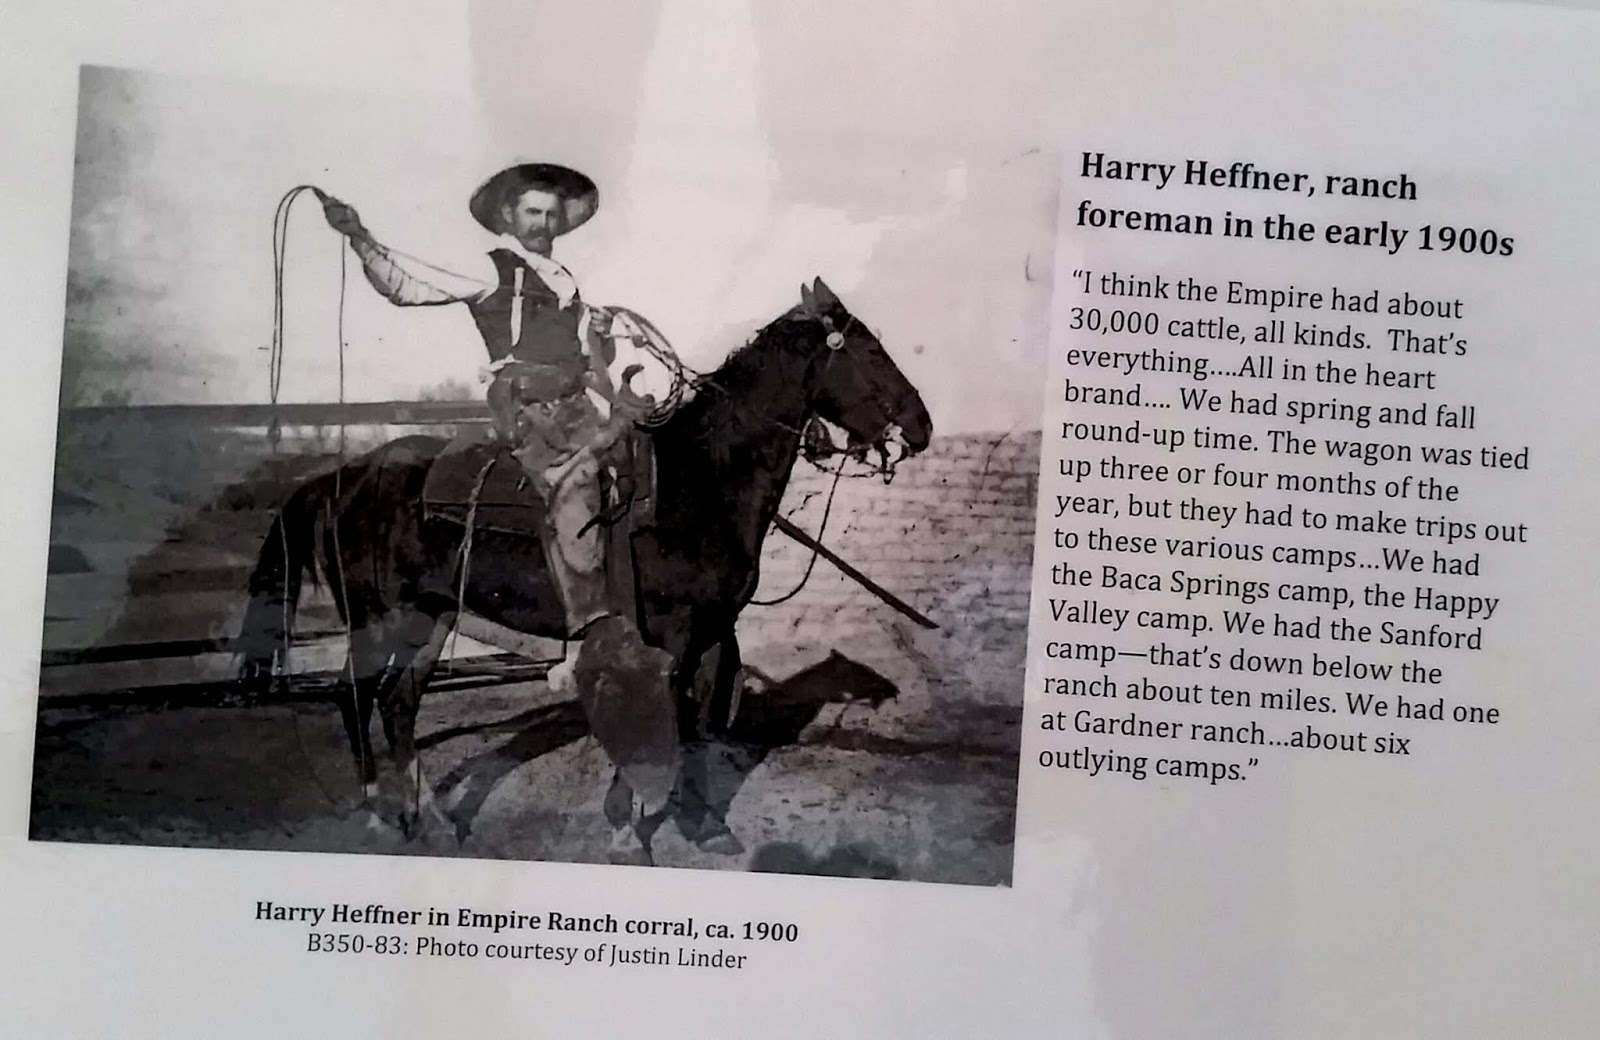 Harry Heffner, ranch
foreman in the early 1900s
“I think the Empire had about
30,000 cattle, all kinds.  That’s
everything….All in the heart
brand…. We had spring and fall
round-up time. The wagon was tied
up three or four months of the
year, but they had to make trips out
to these various camps…We had
the Baca Springs camp, the Happy
Valley camp. We had the Sanford
camp—that’s down below the
ranch about ten miles. We had one
at Gardner ranch…about six
outlying camps.”
Harry Heffner in Empire Ranch corral, ca. 1900
B350-83: Photo courtesy of Justin Linder